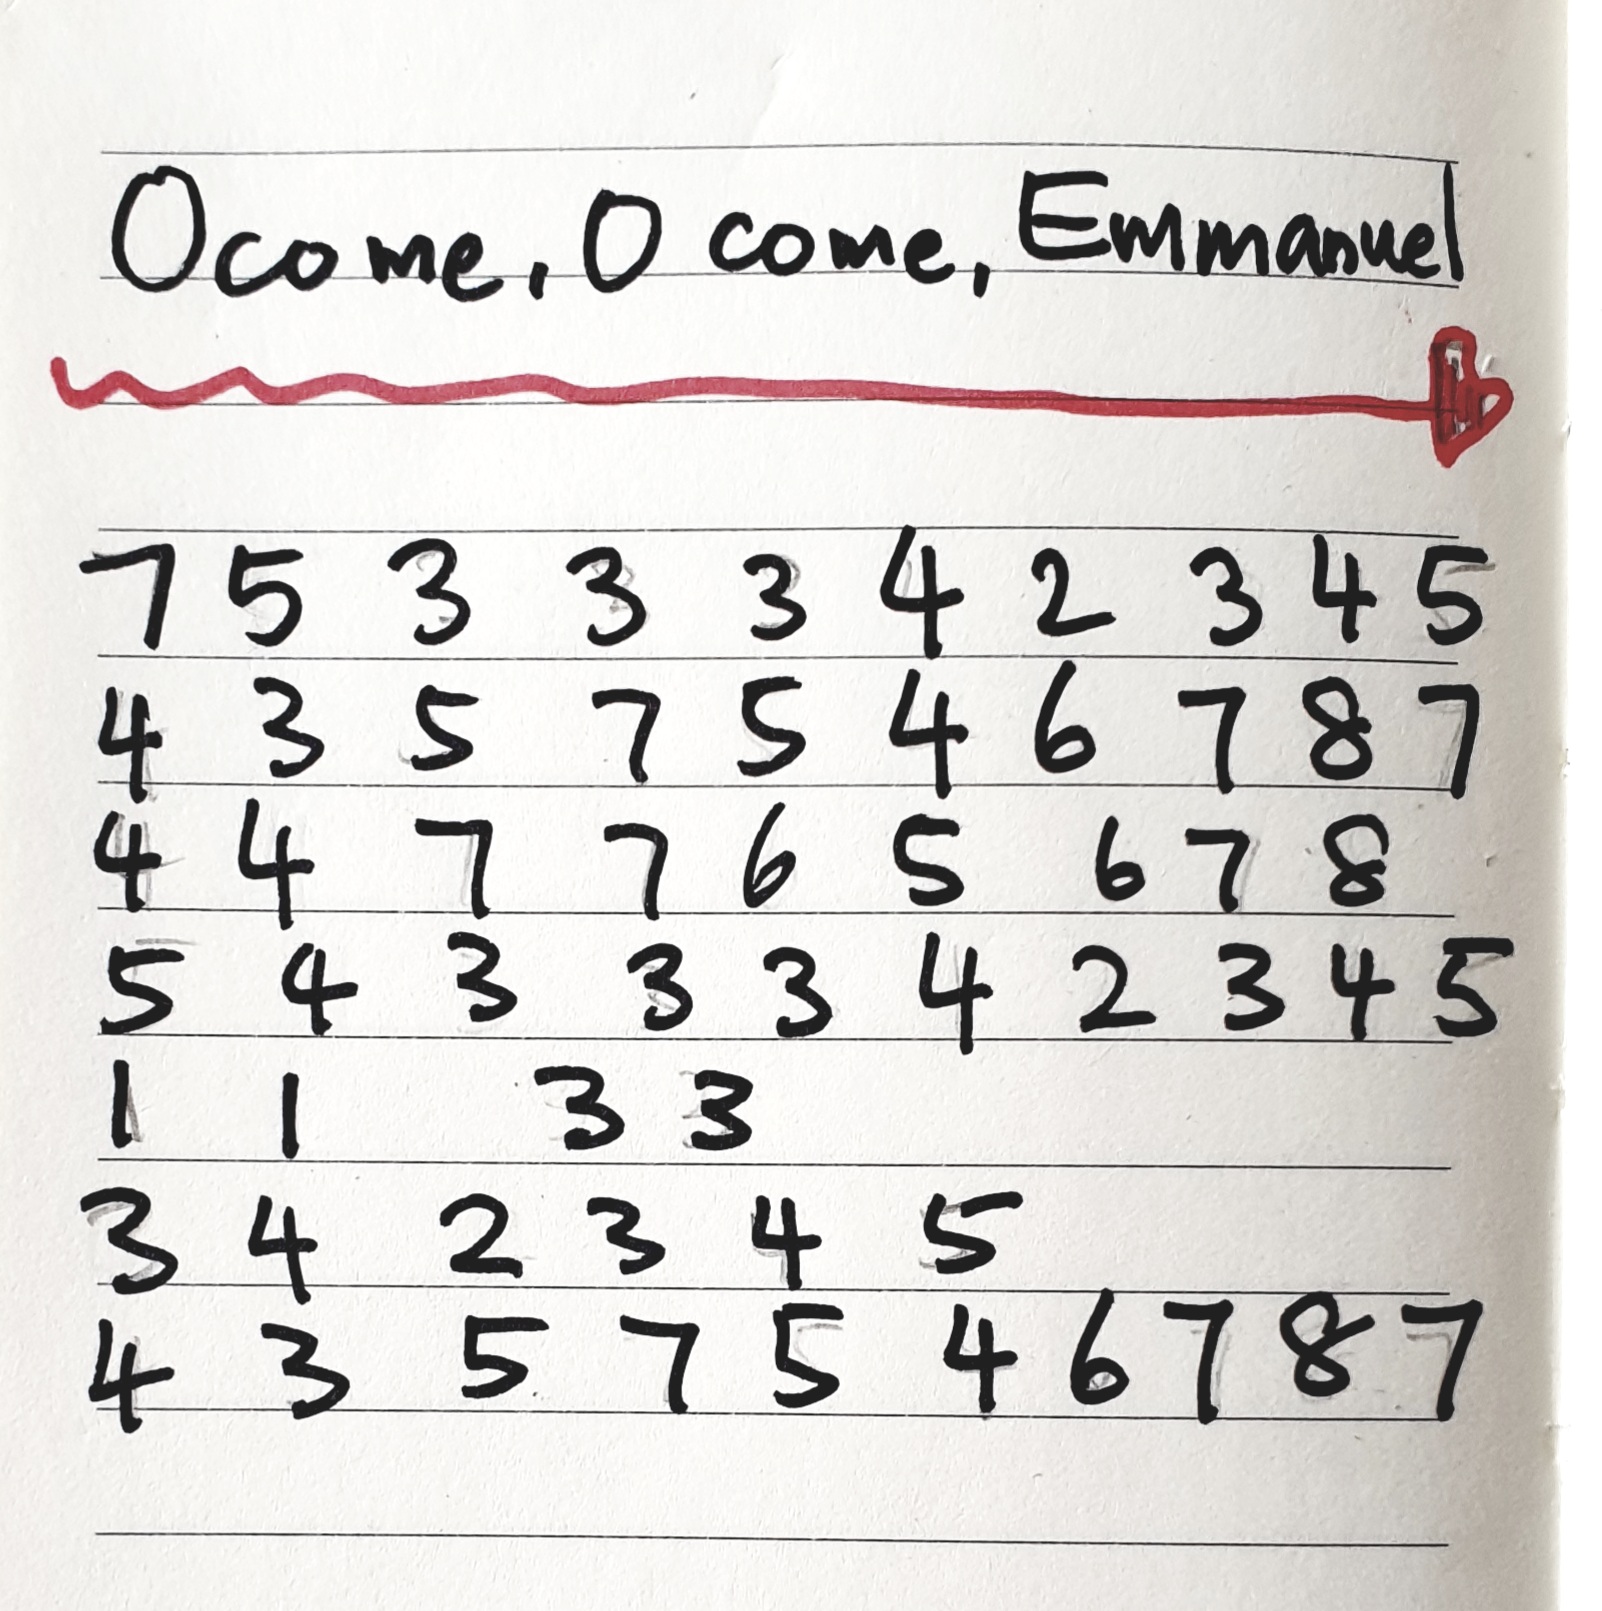 O come, O come, Emmanuel
7 5 3 3 3 4 2 3 4 5
4 3 5 7 5 4 6 7 8 7
4 4 7 7 6 5 6 7 8
5 4 3 3 3 4 2 3 4 5
1 1 3 3
3 4 2 3 4 5
4 3 5 7 5 4 6 7 8 7